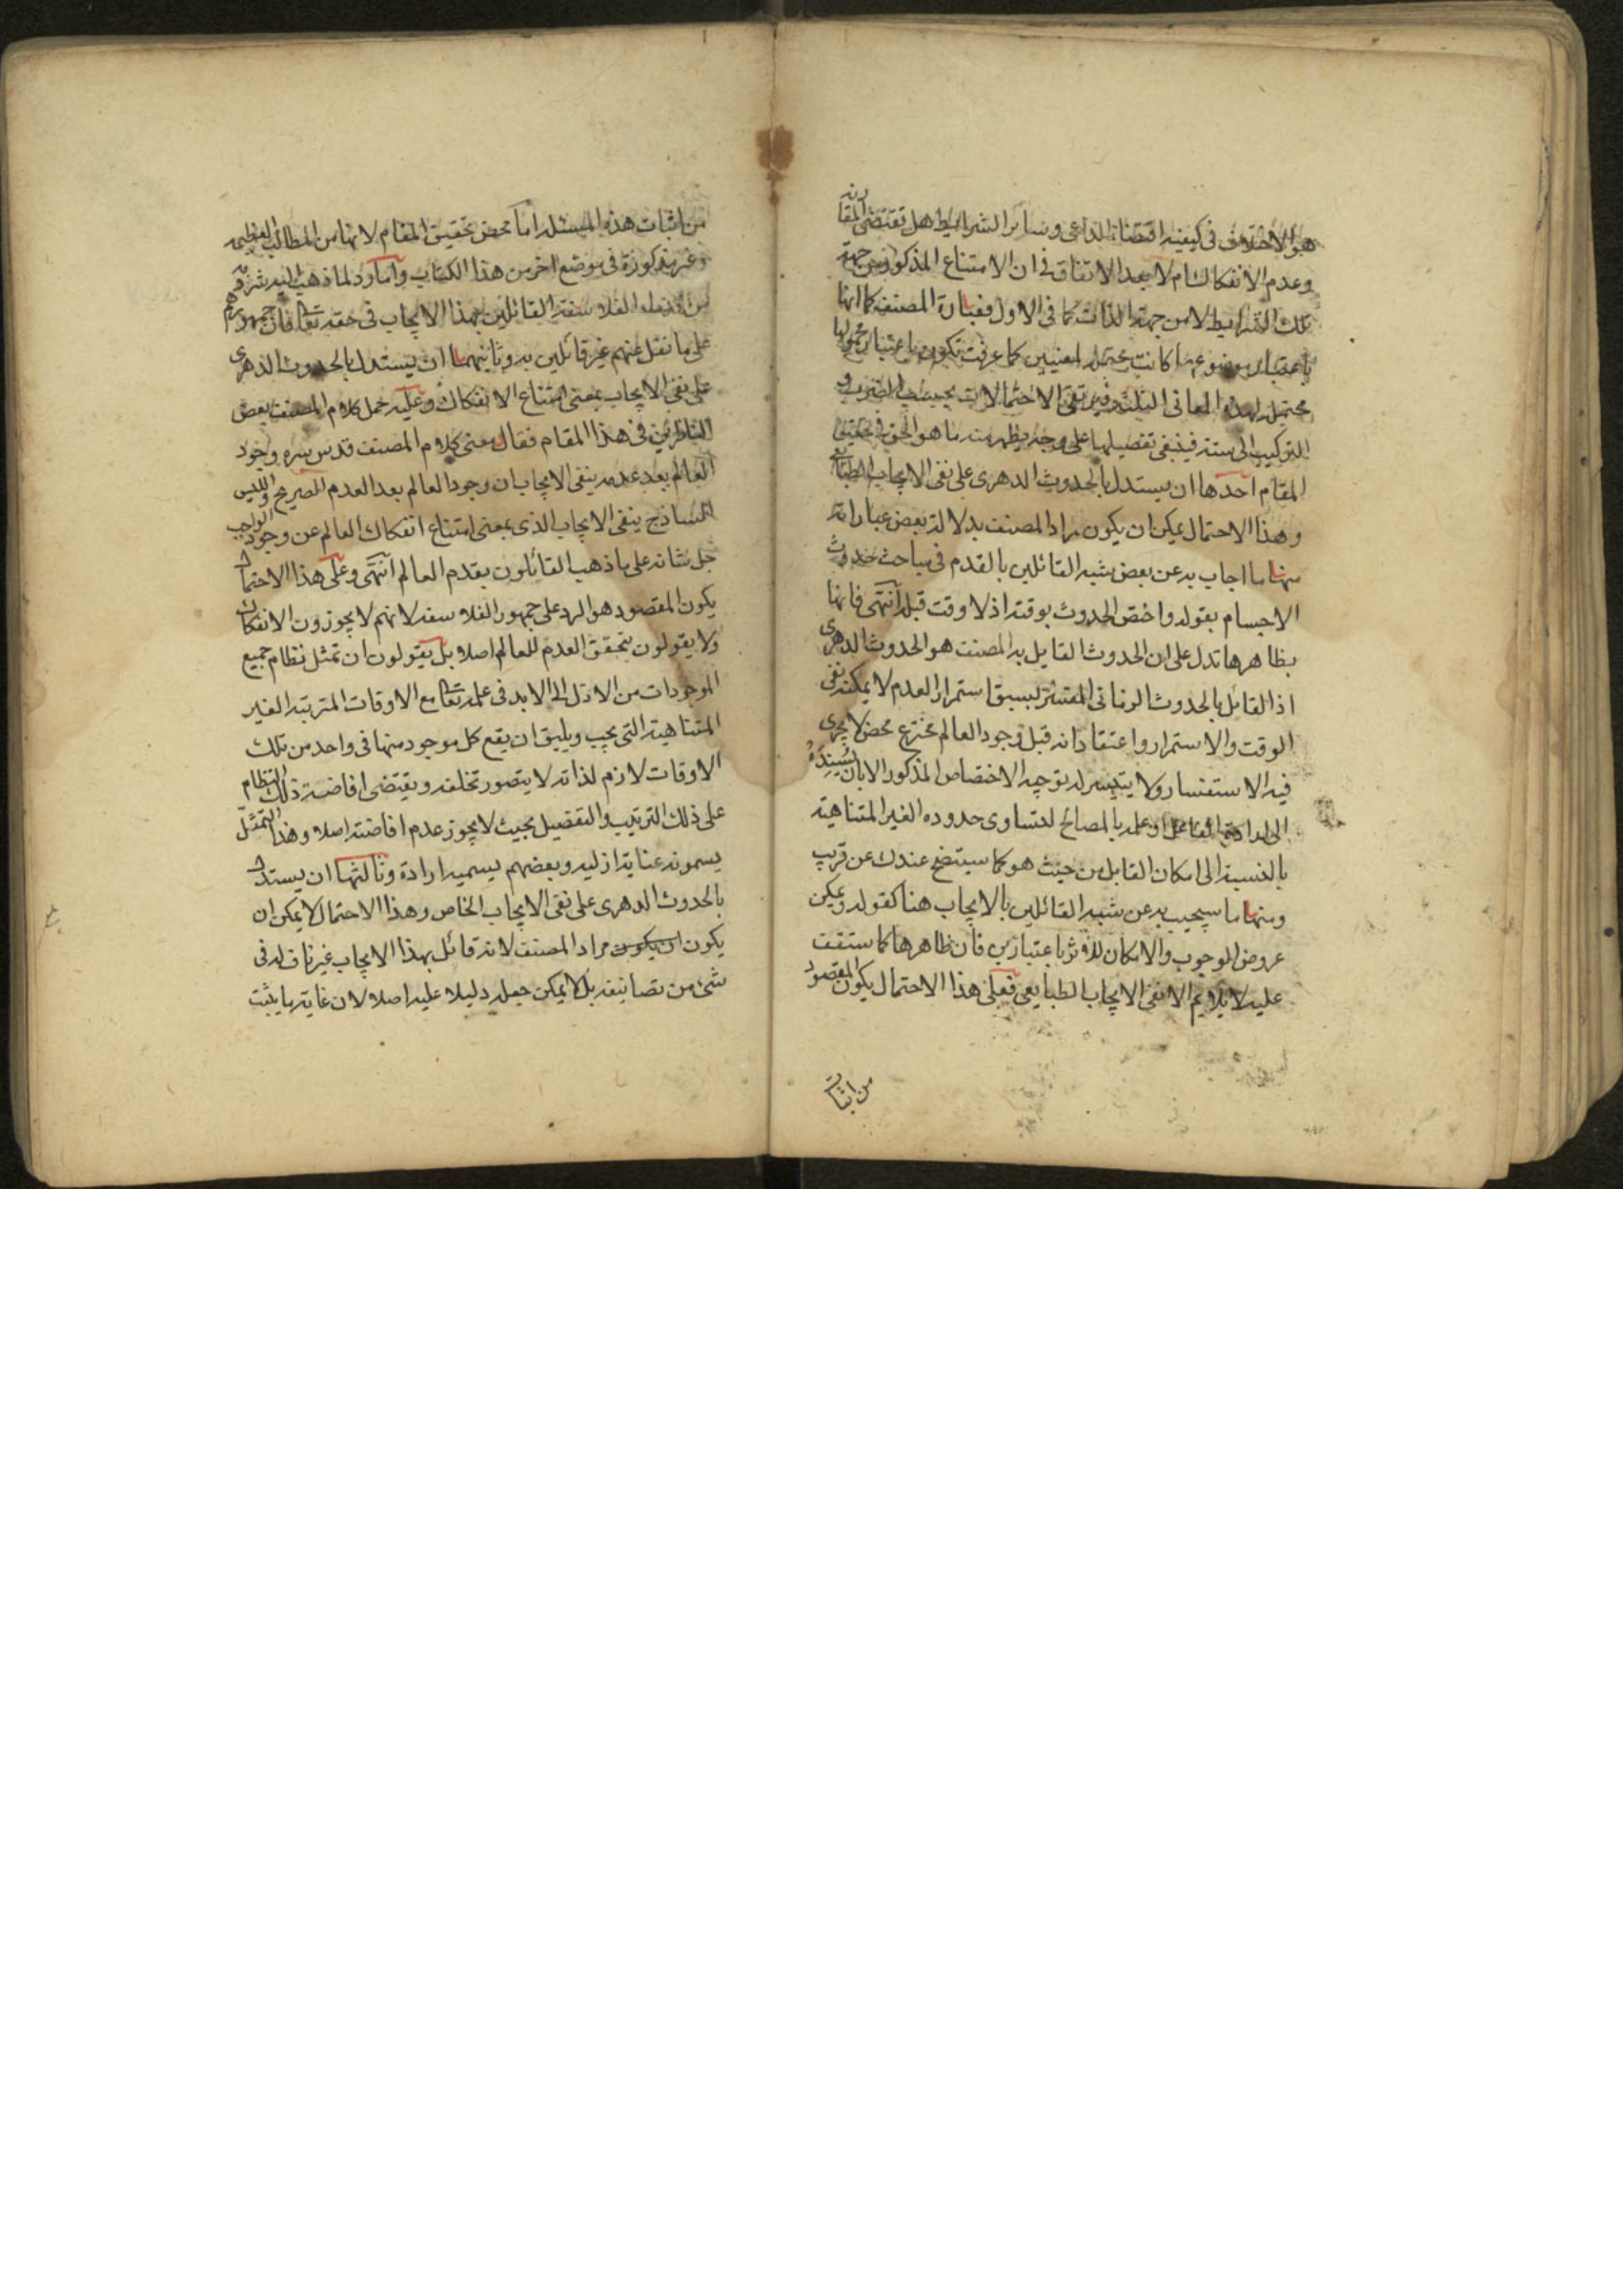 هو الاختلاف فى كيفية اقتضاء الداعى وسائر الشرائط هل تقتضى المقارنة
وعدم الانفكاك ام لا بعد الاتفاق فى ان الامتناع المذكور من جهة
تلك الشرايط لا من جهة الذات كما فى الاول فعبارة المصنف كما انها
باعتبار موضوعها كانت محتملة لمعنيين كما عرفت تكون باعتبار محمولها
محتملة لهذه المعانى الثلثة فيرتقى الاحتمالات بحسب الضرب و
التركيب الى ستة فينبغى تفصيلها على وجه يظهر منه ما هو الحق فى تحقيق
المقام احدها ان يستدل بالحدوث الدهرى على نفى الايجاب الطباعى
وهذا الاحتمال يمكن ان يكون مراد المصنف بدلالة بعض عباراته
منها ما اجاب به عن بعض شبه القائلين بالقدم فى مباحث حدوث
الاجسام بقوله واختص الحدوث بوقته اذ لا وقت قبله انتهى فانها
بظاهرها تدل على ان الحدوث القايل به المصنف هو الحدوث الدهرى
اذ القايل بالحدوث الزمانى المفسر بسبق استمرار العدم لا يمكنه نفى
الوقت والاستمرار واعتقاد انه قبل وجود العالم مخترع محض لا يجرى
فيه الاستفسار ولا يتيسر له توجيه الاختصاص المذكور الا بان يسنده
الى ارادة الفاعل او علمه بالمصالح لتساوى حدوده الغير المتناهية
بالنسبة الى امكان القابل من حيث هو كما سيتضح عندك عن قريب
ومنها ما سيجيب به عن شبه القائلين بالايجاب هنا كقوله ويمكن
عروض الوجوب والامكان للاثر باعتبارين فان ظاهرها كما ستقف
عليه لا يلايم الا نفى الايجاب الطبايعى فعلى هذا الاحتمال يكون المقصود
من اثبات
من اثبات هذه المسئلة اما محض تحقيق المقام لانها من المطالب العظيمة
وغير مذكورة فى موضع اخر من هذا الكتاب واما رد لما ذهب اليه شرذمة
من الفلاسفة القائلين بهذا الايجاب فى حقه تعالى فان جمهورهم
على ما نقل عنهم غير قائلين به وثانيهما ان يستدل بالحدوث الدهرى
على نفى الايجاب بمعنى امتناع الانفكاك وعليه حمل كلام المصنف بعض
الناظرين فى هذا المقام فقال معنى كلام المصنف قدس سره وجود
العالم بعد عدمه ينفى الايجاب ان وجود العالم بعد العدم الصريح والليس
الساذج ينفى الايجاب الذى بمعنى امتناع انفكاك العالم عن وجود الواجب
جل شانه على ما ذهب القائلون بقدم العالم انتهى وعلى هذا الاحتمال
يكون المقصود هو الرد على جمهور الفلاسفة لانهم لا يجوزون الانفكاك
ولا يقولون بتحقق العدم للعالم اصلا بل يقولون ان تمثل نظام جميع
الموجودات من الازل الى الابد فى علمه تعالى مع الاوقات المترتبة الغير
المتناهية التى يجب ويليق ان يقع كل موجود منها فى واحد من تلك
الاوقات لازم لذاته لا يتصور تخلفه ويقتضى افاضة ذلك النظام
على ذلك الترتيب والتفصيل بحيث لا يجوز عدم افاضته اصلا وهذا التمثل
يسمونه عناية ازلية وبعضهم يسميه ارادة وثالثها ان يستدل
بالحدوث الدهرى على نفى الايجاب الخاص وهذا الاحتمال لا يمكن ان
يكون ان يكون مراد المصنف لانه قائل بهذا الايجاب غير ناف له فى
شئ من تصانيفه بل لا يمكن جعله دليلا عليه اصلا لان غاية ما يثبت